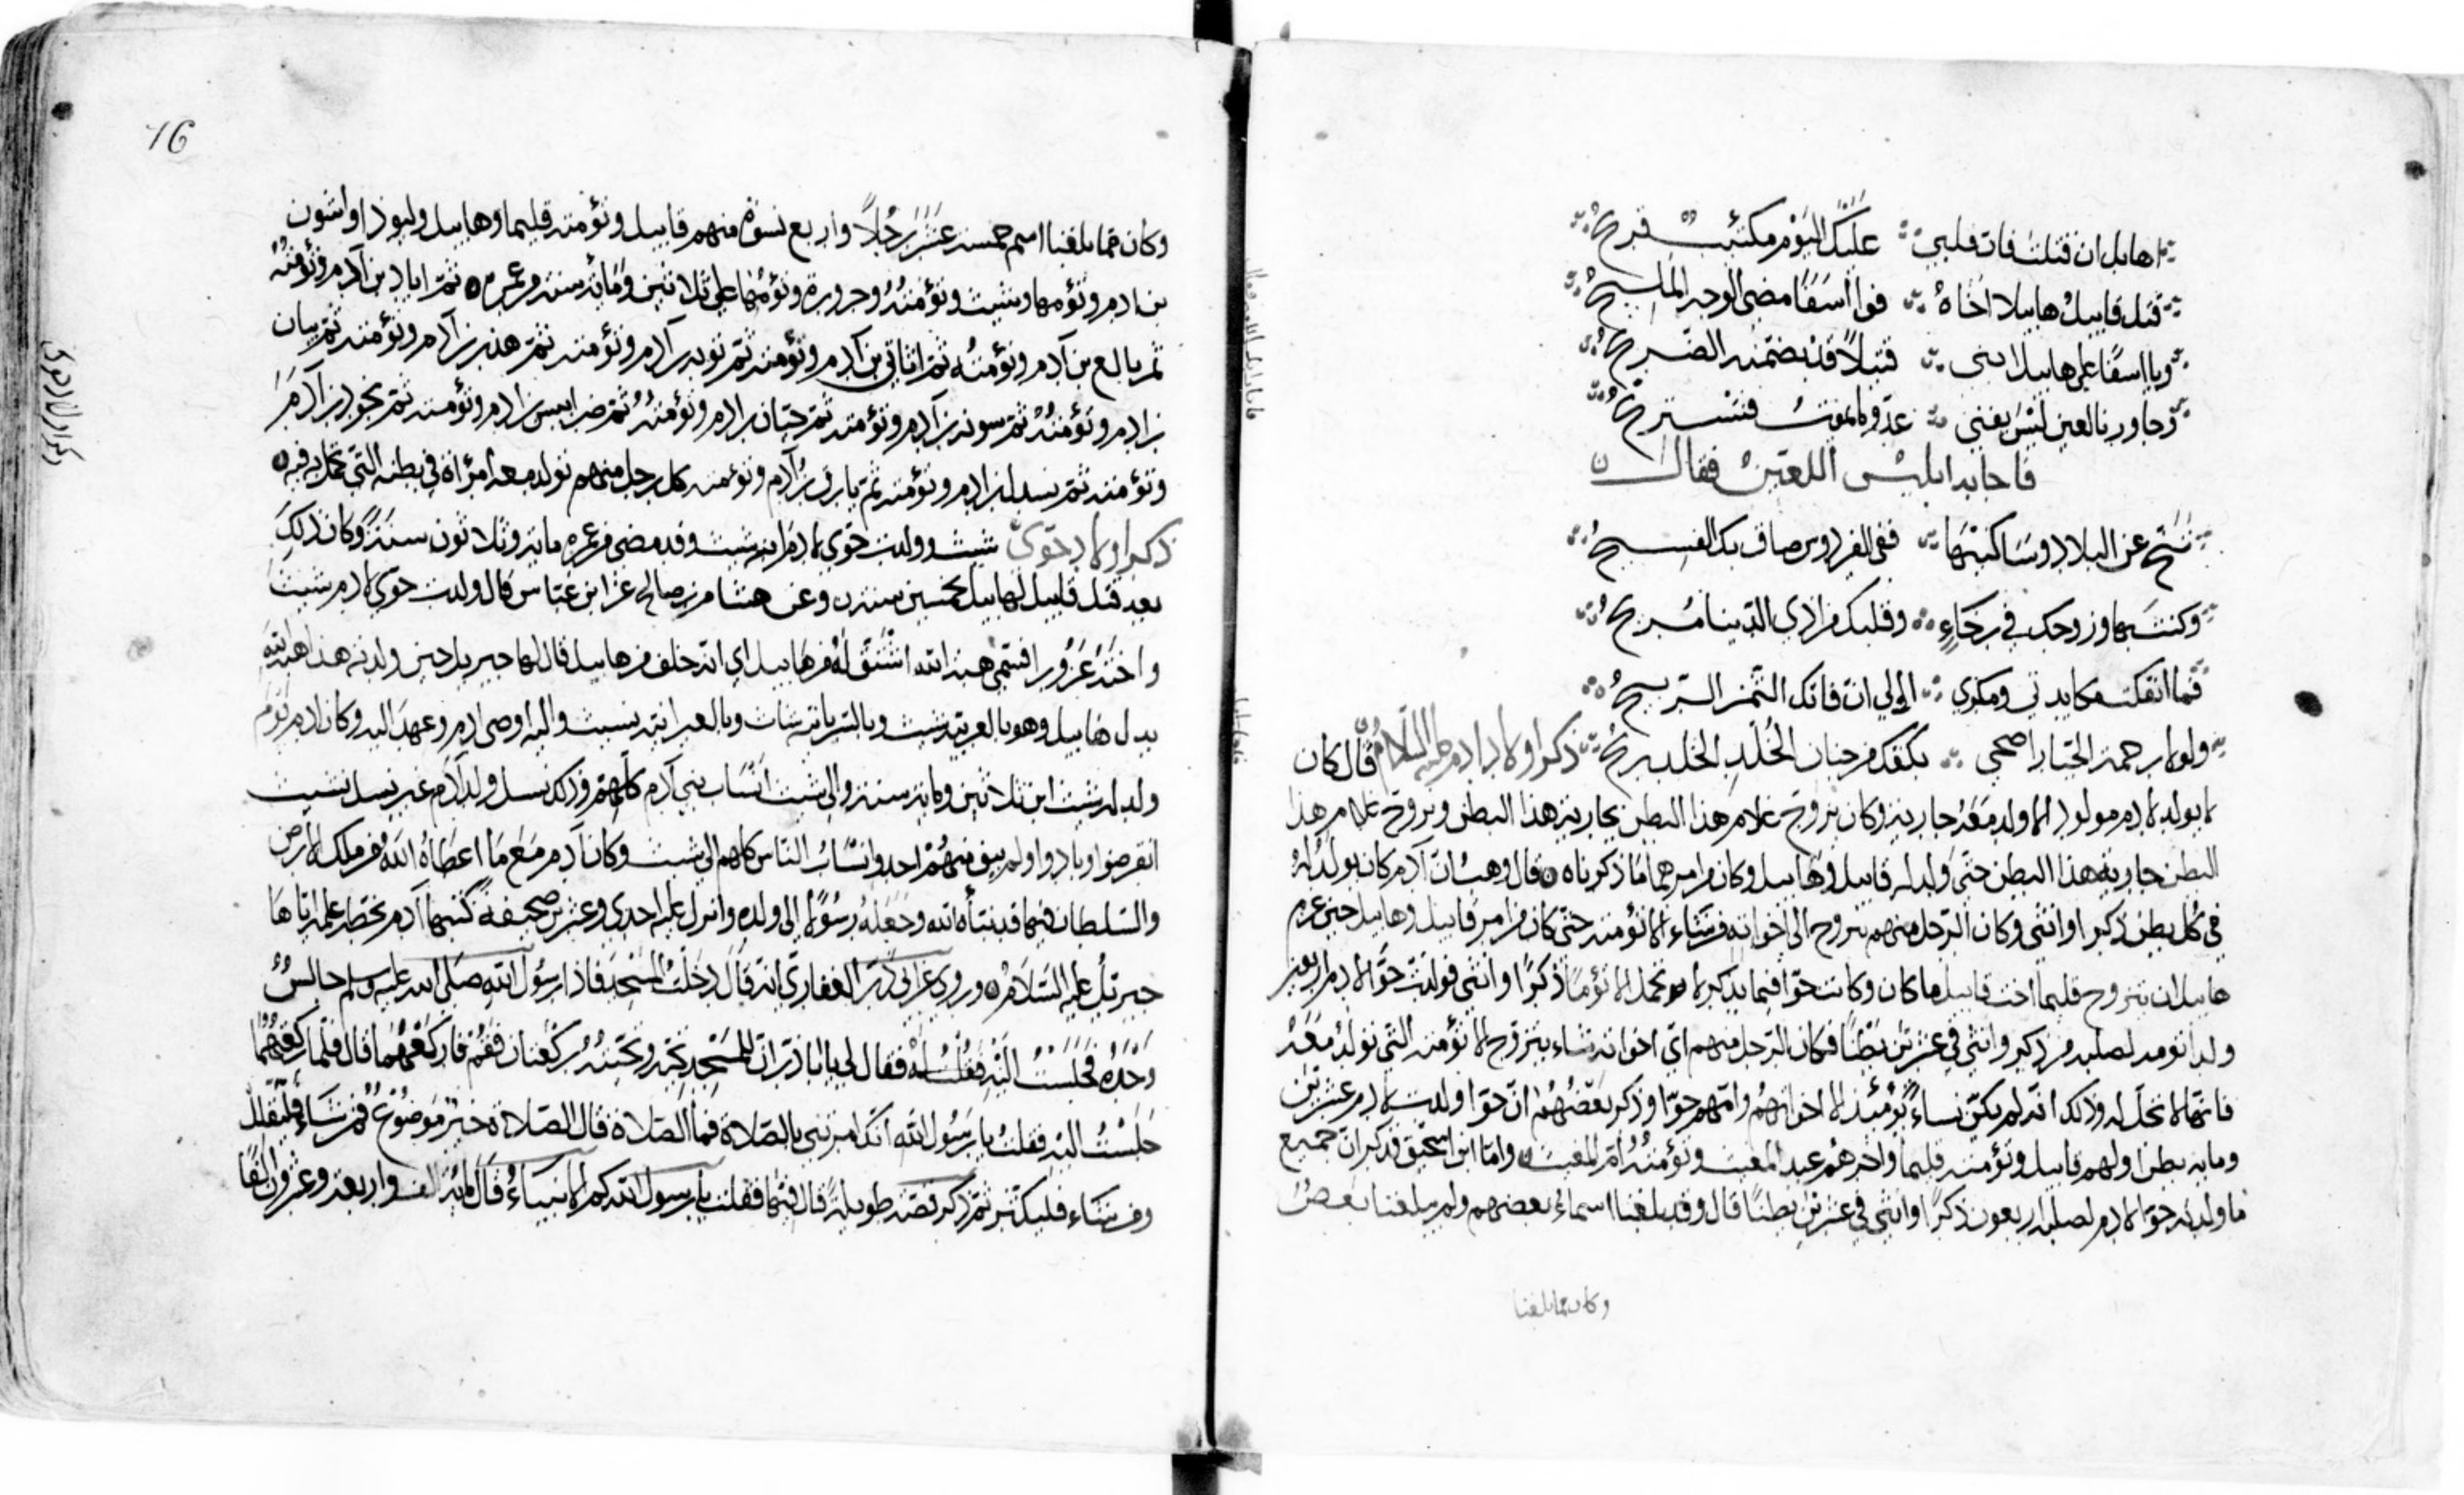 اهابل ان قتلت فان قلبي عليك اليوم مكتئب قريح
قتل قابيل هابيلا اخاه فوا اسفا مضى الوجه المليح
ويا اسفا على هابيل ابني قتيلا قد تضمنه الضريح
وجاورنا لعين ليس يفنى عدو لا يموت فنستريح
فاجابه ابليس اللعين فقال
تنح عن البلاد وساكنيها ففي الفردوس ضاق بك الفسيح
وكنت بها وزوجك في رخاء وقلبك من اذى الدنيا مريح
فما انفكت مكايدتي ومكري الى ان فاتك الثمن الربيح
ولولا رحمة الجبار اضحى بكفك من جنان الخلد ريح ذكر اولاد ادم عليه السلام قال كان
لا يولد لادم مولود الا ولد معه جارية وكان يزوج غلام هذا البطن بجارية هذا البطن ويزوج غلام هذا
البطن جارية هذا البطن حتى ولد له قابيل وهابيل وكان من امرهما ما ذكرناه قال وهب ان آدم كان يولد له
في كل بطن ذكر او انثى وكان الرجل منهم يتزوج اى اخواته من شاء الا تؤمته حتى كان من امر قابيل وهابيل حين عزم
هابيل ان يتزوج قليما اخت قابيل ما كان وكانت حوا فيما يذكر لا تحمل الا تؤما ذكرا وانثى فولدت حوا لادم اربعين
ولدا تومه لصلبه من ذكر وانثى في عشرين بطنا فكان الرجل منهم اي اخواته شاء يتزوج الا تؤمته التي تولد معه
فانها لا تحل له وذلك انه لم يكن نساء يومئذ الا اخواتهم وامهم حوا وذكر بعضهم ان حوا ولدت لادم عشرين
ومايه بطن اولهم قابيل وتؤمته قليما واخرهم عبد المغيث وتؤمته امة المغيث واما ابن اسحق فذكر ان جميع
ما ولدته حوا لادم لصلبه اربعون ذكرا وانثى في عشرين بطنا قال وقد بلغنا اسماء بعضهم ولم يبلغنا بعض
وكان مما بلغنا
16
وكان مما بلغنا اسم خمسة عشر رجلا واربع نسوة منهم قابيل وتؤمته قليما وهابيل وليوذا واشون
بن ادم وتؤمها وشيث وتؤمته وحزورة وتؤمها على ثلاثين ومائة سنة من عمره ثم اياد بن آدم وتؤمته
ثم بالغ بن آدم وتؤمته ثم اثاثي بن آدم وتؤمته ثم توبه بن آدم وتؤمته ثم هدبر بن آدم وتؤمته ثم بيان
بن ادم وتؤمته ثم سونه بن آدم وتؤمته ثم حيان بن ادم وتؤمته ثم ضرابيس بن ادم وتؤمته ثم يحود بن آدم
وتؤمته ثم سندل بن ادم وتؤمته ثم يارق بن آدم وتؤمته كل رجل منهم تولد معه امرأة في بطنه التي تحمل به فيه
ذكر اولاد حوى شيث وولدت حوى لادم ابنه شيث وقد مضى من عمره ماية وثلاثون سنة وكان ذلك
بعد قتل قابيل لهابيل بخمسين سنة وعن هشام بن صالح عن ابن عباس قال ولدت حوى لادم شيث
واخته عزورا فسمى هبة الله اشتق له من هابيل اي انه خلف من هابيل قال لها جبريل حين ولدته هذا هبة الله
بدل هابيل وهو بالعربية شيث وبالسريانية شاث وبالعبرانية شيث واليه اوصى ادم وعهد اليه وكان ادم يوم
ولد له شيث ابن ثلاثين وماية سنة والى شيث انساب بني آدم كلهم وذلك نسل ولد لآدم غير نسل شيث
انقرضوا وبادوا ولم يبق منهم احد وانساب الناس كلهم الى شيث وكان آدم مع ما اعطاه الله من ملك الارض
والسلطان فيها قد نبأه الله وجعله رسولا الى ولده وانزل عليه احدى وعشرين صحيفة كتبها آدم بخطه علمه اياها
جبرئيل عليه السلام وروي عن ابي ذر الغفاري انه قال دخلت المسجد فاذا رسول الله صلى الله عليه وسلم جالس
وحده فجلست اليه فقلت له فقال لي يا ابا ذر ان للمسجد تحية وتحيته ركعتان فقم فاركعهما قال فلما ركعتهما
جلست اليه فقلت يا رسول الله انك امرتني بالصلاة فما الصلاة قال الصلاة خير موضوع فمن شاء فليقلل
ومن شاء فليكثر ثم ذكر قصة طويلة قال فيها فقلت يا رسول الله كم الانبياء قال ماية الف واربعة وعشرون الفا